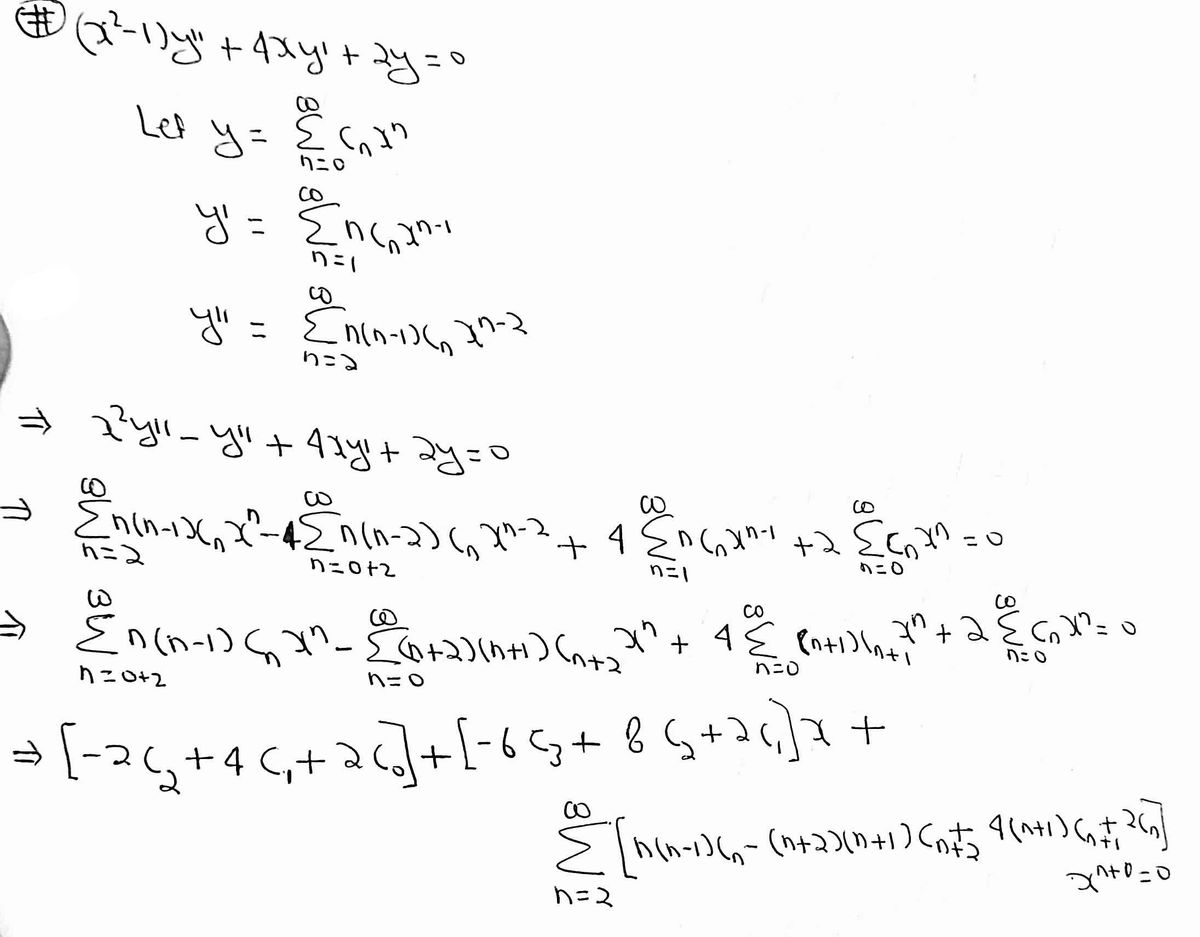 # (x²-1)y'' + 4xy' + 2y = 0
Let y = ∞ Σ n=0 Cₙxⁿ
y' = ∞ Σ n=1 nCₙxⁿ⁻¹
y'' = ∞ Σ n=2 n(n-1)Cₙxⁿ⁻²
⇒ x²y'' - y'' + 4xy' + 2y = 0
⇒ ∞ Σ n=2 n(n-1)Cₙxⁿ - ∞ Σ n=0+2 n(n-2)Cₙxⁿ⁻² + 4 ∞ Σ n=1 nCₙxⁿ⁻¹ + 2 ∞ Σ n=0 Cₙxⁿ = 0
⇒ ∞ Σ n=0+2 n(n-1)Cₙxⁿ - ∞ Σ n=0 (n+2)(n+1)Cₙ₊₂xⁿ + 4 ∞ Σ n=0 (n+1)Cₙ₊₁xⁿ + 2 ∞ Σ n=0 Cₙxⁿ = 0
⇒ [-2C₂ + 4C₁ + 2C₀] + [-6C₃ + 8C₂ + 2C₁]x +
∞ Σ n=2 [n(n-1)Cₙ - (n+2)(n+1)Cₙ₊₂ + 4(n+1)Cₙ₊₁ + 2Cₙ]
xⁿ⁺⁰ = 0